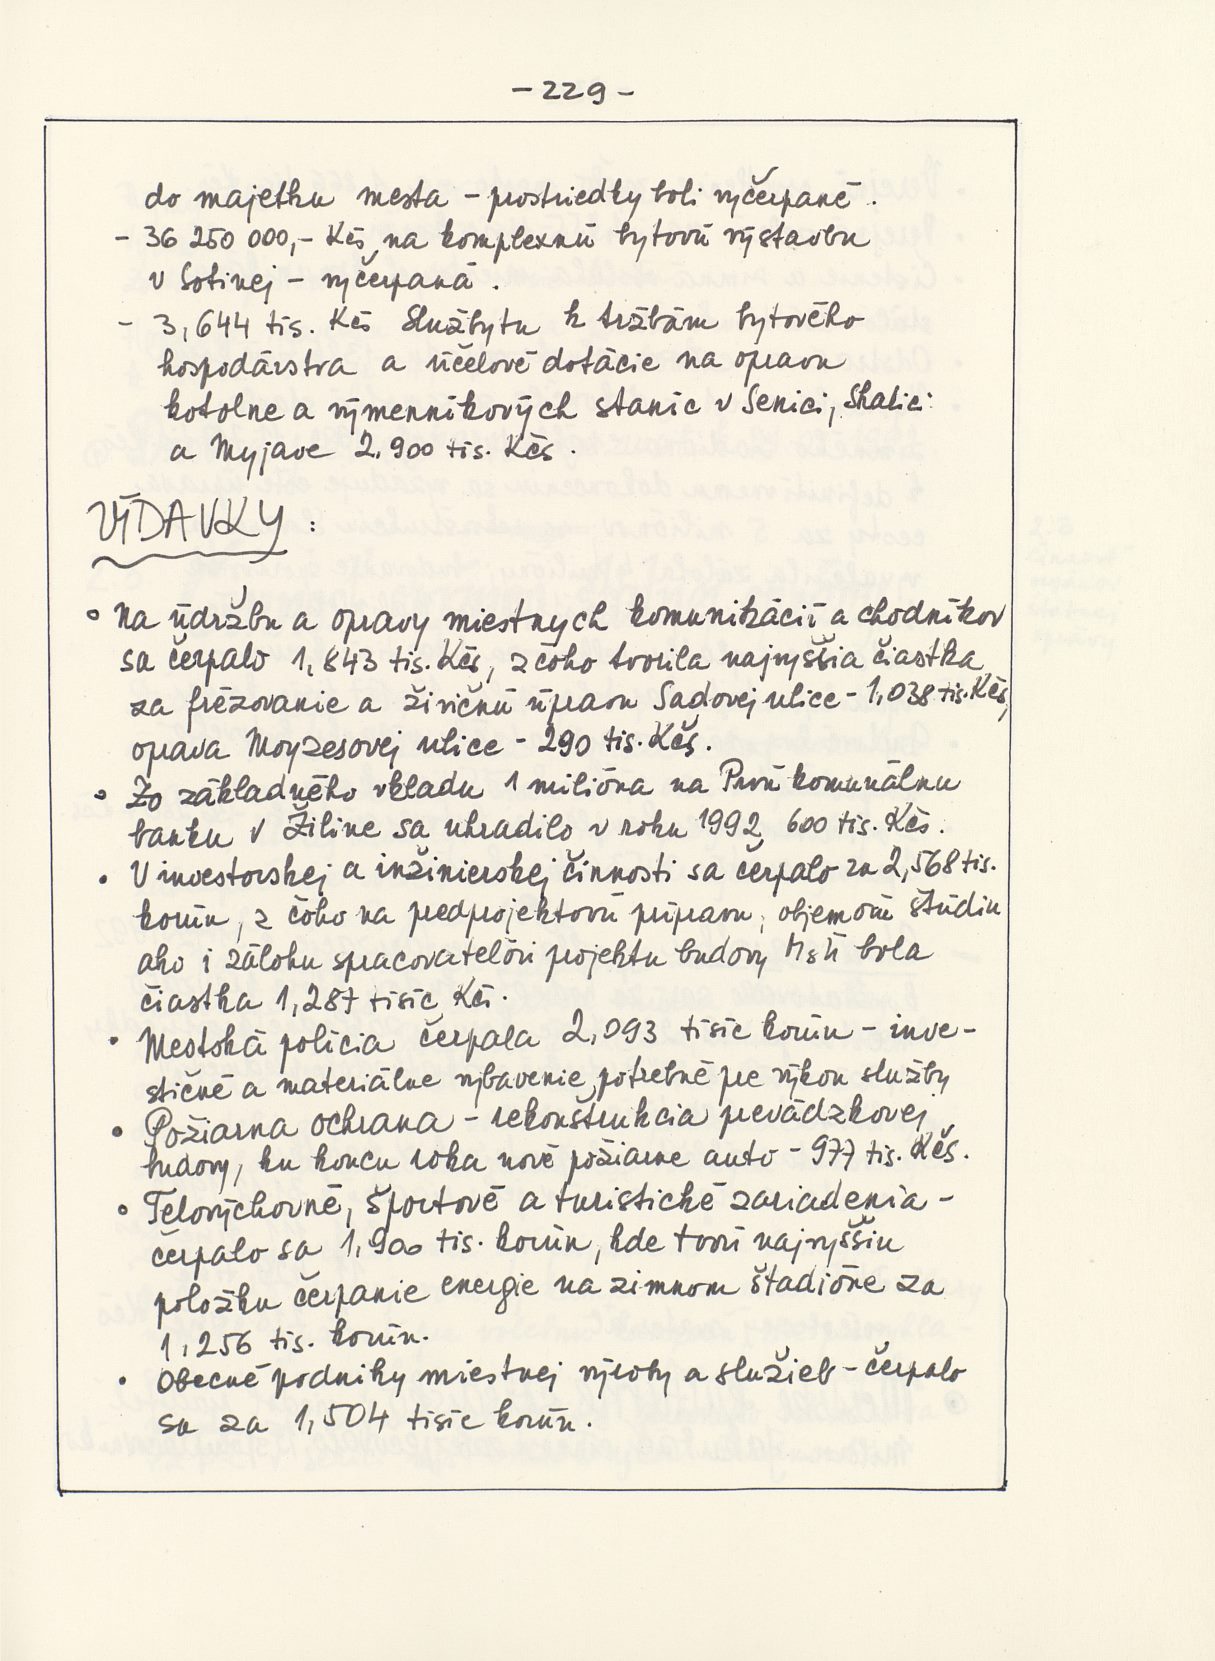 - 229 -
do majetku mesta - prostriedky boli vyčerpané.
- 36 250 000,- Kčs na komplexnú bytovú výstavbu
v Sotinej - vyčerpaná.
- 3,644 tis. Kčs Službytu k tržbám bytového
hospodárstva a účelové dotácie na opravu
kotolne a výmenníkových staníc v Senici, Skalici
a Myjave 2.900 tis. Kčs.
VÝDAVKY:
• Na údržbu a opravy miestnych komunikácií a chodníkov
sa čerpalo 1,843 tis. Kčs, z čoho tvorila najvyššia čiastka
za frézovanie a živičnú úpravu Sadovej ulice - 1,038 tis. Kčs,
oprava Moyzesovej ulice - 290 tis. Kčs.
• Zo základného vkladu 1 milióna na Prvú komunálnu
banku v Žiline sa uhradilo v roku 1992 600 tis. Kčs.
• V investorskej a inžinierskej činnosti sa čerpalo za 2,568 tis.
korún, z čoho na predprojektovú prípravu, objemovú štúdiu
ako i zálohu spracovateľovi projektu budovy MsÚ bola
čiastka 1,287 tisíc Kčs.
• Mestská polícia čerpala 2,093 tisíc korún - inve-
stičné a materiálne vybavenie potrebné pre výkon služby
• Požiarna ochrana - rekonštrukcia prevádzkovej
budovy, ku koncu roka nové požiarne auto - 977 tis. Kčs.
• Telovýchovné, športové a turistické zariadenia -
čerpalo sa 1,900 tis. korún, kde tvorí najvyššiu
položku čerpanie energie na zimnom štadióne za
1,256 tis. korún.
• Obecné podniky miestnej výroby a služieb - čerpalo
sa za 1,504 tisíc korún.